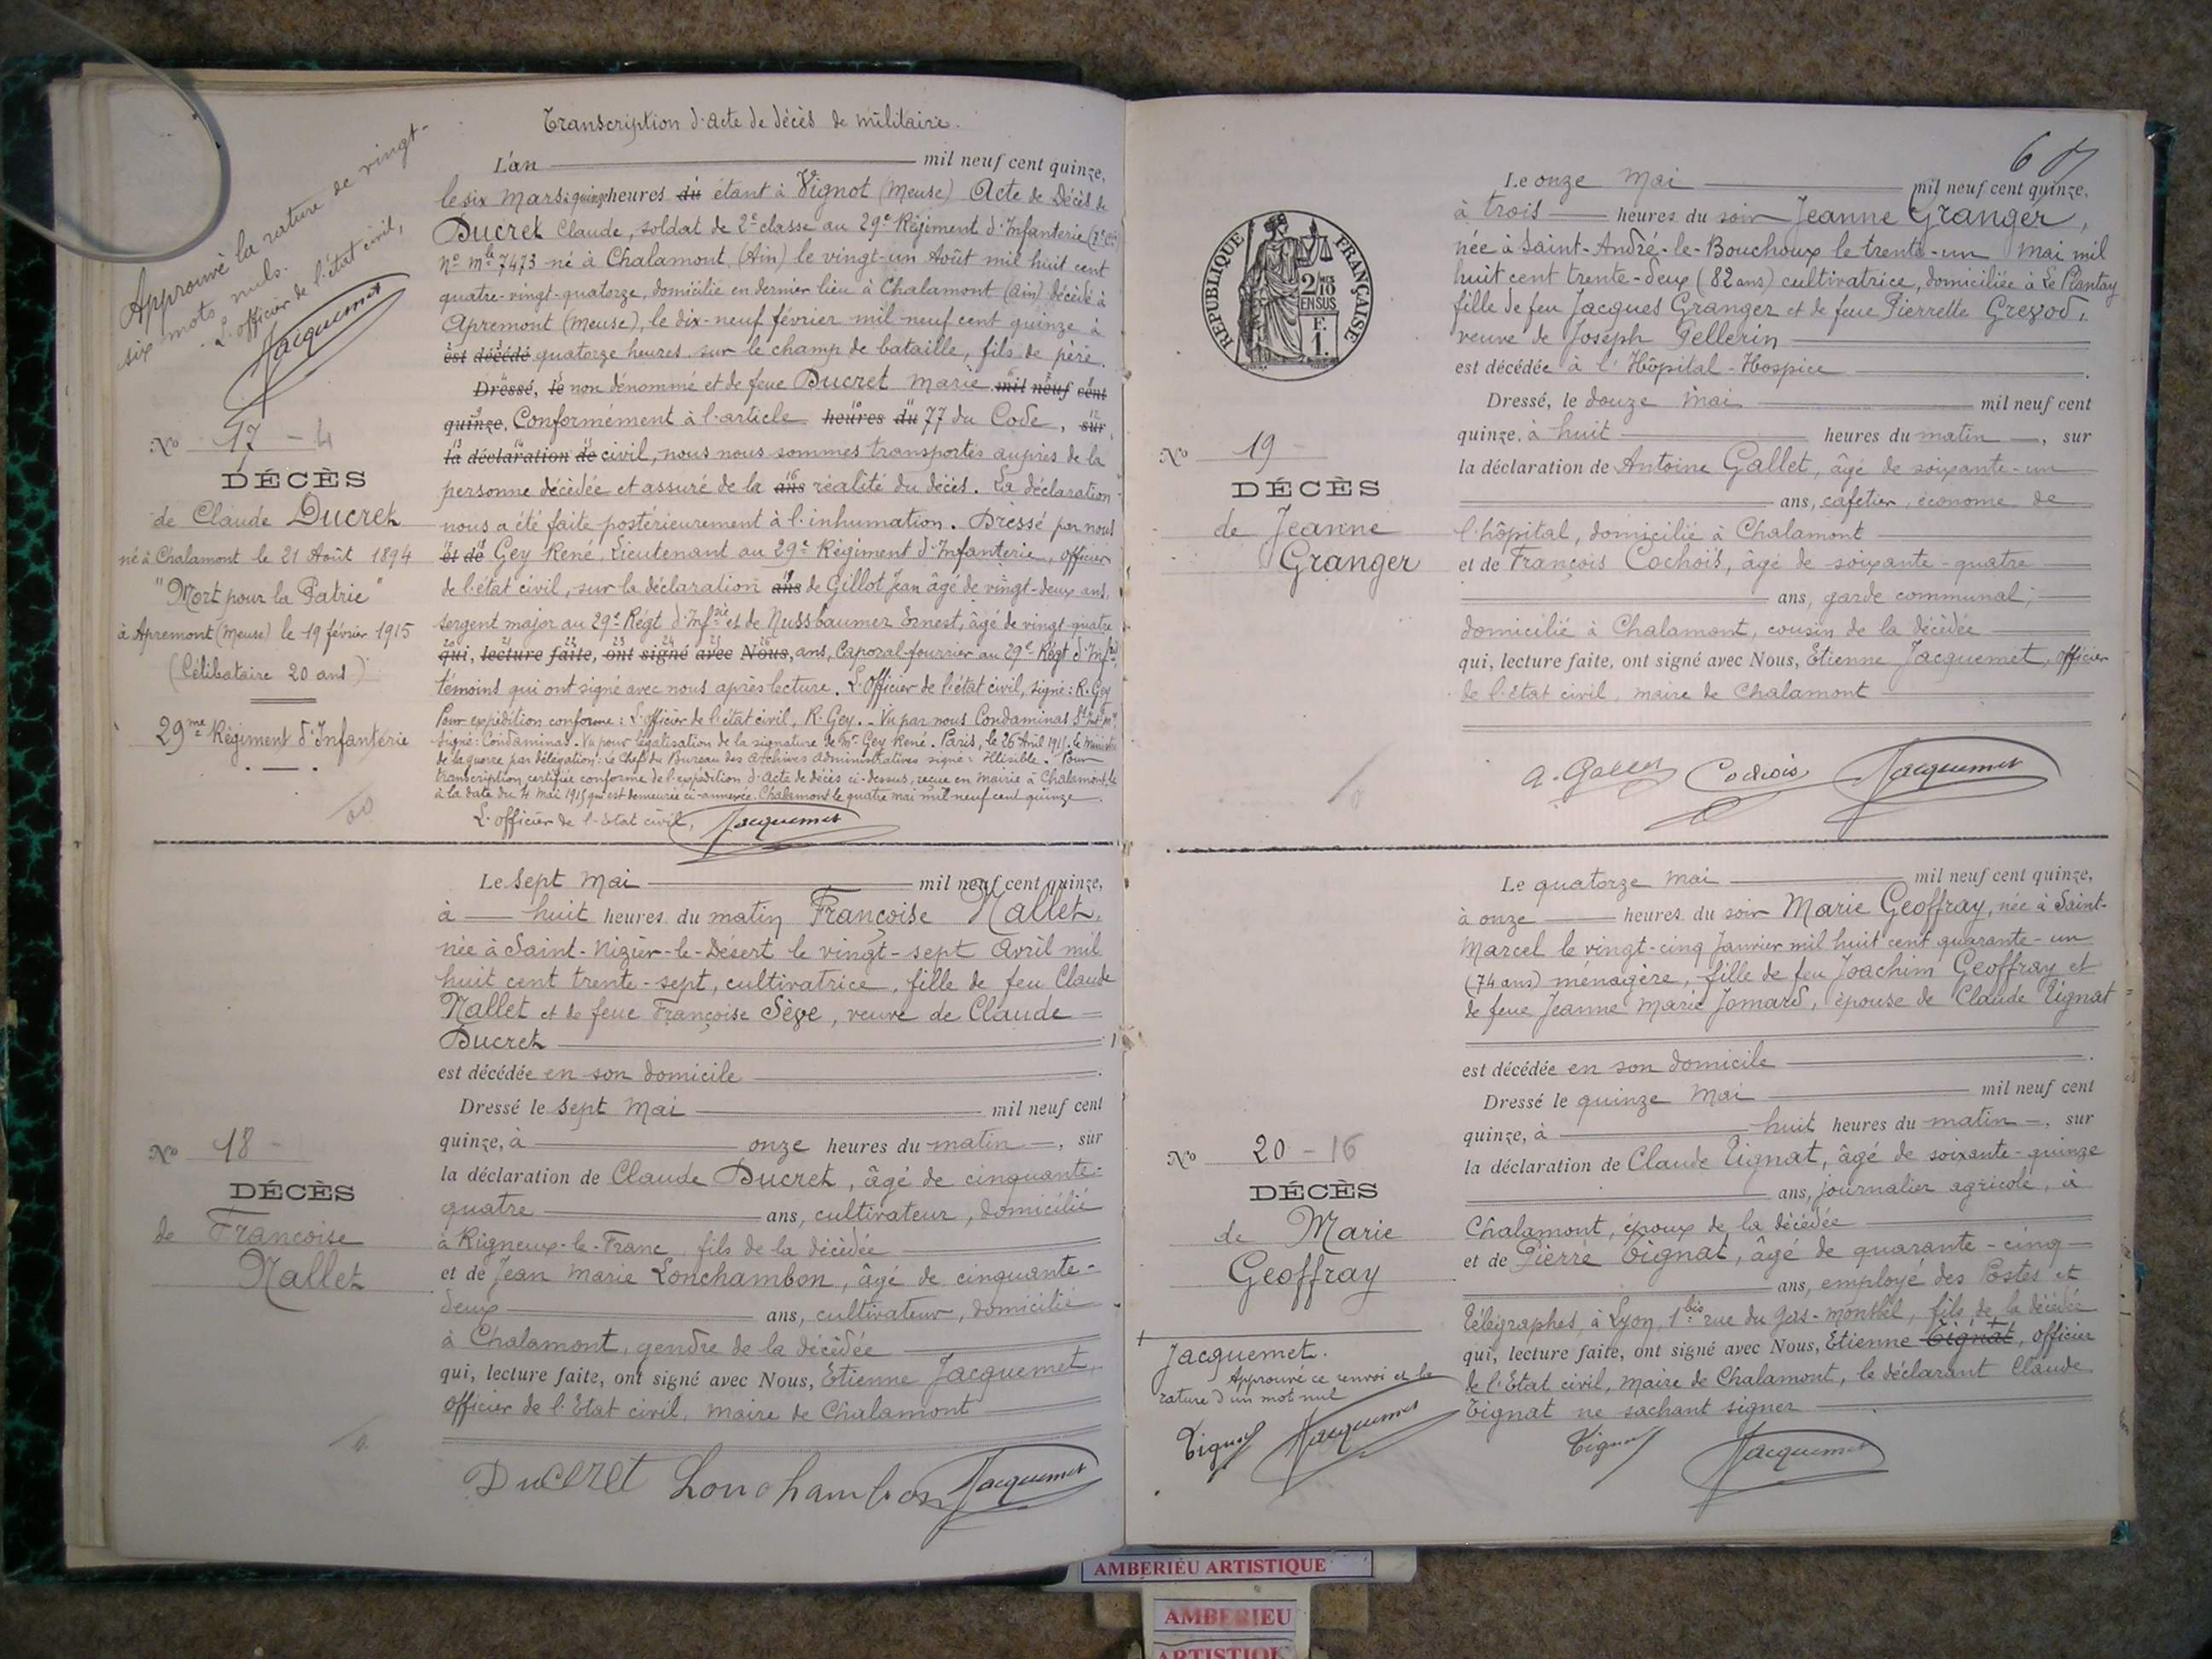 Transcription d'acte de décès de militaire.
Approuvé la rature de vingt-
six mots nuls.
L'officier de l'état civil,
Jacquemet
L'an mil neuf cent quinze,
le six Mars à quinze heures du étant à Vignot (Meuse) Acte de Décès de
Ducret Claude, soldat de 2e classe au 29e Régiment d'Infanterie
No mle 7473 né à Chalamont (Ain) le vingt-un Août mil huit cent
quatre-vingt-quatorze, domicilié en dernier lieu à Chalamont (Ain) décédé à
Apremont (Meuse), le dix-neuf février mil neuf cent quinze à
est décédé quatorze heures sur le champ de bataille, fils de père
Dressé, le non dénommé et de feue Ducret Marie mil neuf cent
quinze, Conformément à l'article heures du 77 du Code, sur
la déclaration de civil, nous nous sommes transportés auprès de la
personne décédée et assuré de la ans réalité du décès. La déclaration
nous a été faite postérieurement à l'inhumation. Dressé par nous
et de Gey René, Lieutenant au 29e Régiment d'Infanterie, officier
de l'état civil, sur la déclaration ans de Gillot Jean âgé de vingt-deux ans,
sergent major au 29e Régt d'Infrie et de Nussbaumer Ernest, âgé de vingt-quatre
qui, lecture faite, ont signé avec Nous, ans, Caporal-fourrier au 29e Régt d'Infrie
témoins qui ont signé avec nous après lecture. L'Officier de l'état civil, signé: R. Gey
Pour expédition conforme: L'officier de l'état civil, R. Gey. - Vu par nous Condaminas
signé: Condaminas. Vu pour légalisation de la signature de Mr Gey René. Paris, le 26 Avril 1915. Le Ministre
de la guerre par délégation: Le Chef du Bureau des Archives Administratives signé: Illisible. Pour
transcription certifiée conforme de l'expédition d'acte de décès ci-dessus, reçue en mairie à Chalamont, le
à la date du 4 Mai 1915 qui est demeurée ci-annexée. Chalamont le quatre mai mil neuf cent quinze.
L'officier de l'Etat civil, Jacquemet
No 17 - 4
DÉCÈS
de Claude Ducret
né à Chalamont le 21 Août 1894
"Mort pour la Patrie"
à Apremont (Meuse) le 19 février 1915
(Célibataire 20 ans)
29me Régiment d'Infanterie
Le sept Mai mil neuf cent quinze,
à huit heures du matin Françoise Nallet,
née à Saint-Nizier-le-Désert le vingt-sept Avril mil
huit cent trente-sept, cultivatrice, fille de feu Claude
Nallet et de feue Françoise Sève, veuve de Claude
Ducret
est décédée en son domicile
Dressé le sept Mai mil neuf cent
quinze, à onze heures du matin, sur
la déclaration de Claude Ducret, âgé de cinquante-
quatre ans, cultivateur, domicilié
à Rigneux-le-Franc, fils de la décédée
et de Jean Marie Lonchambon, âgé de cinquante-
deux ans, cultivateur, domicilié
à Chalamont, gendre de la décédée
qui, lecture faite, ont signé avec Nous, Etienne Jacquemet,
Officier de l'Etat civil, maire de Chalamont
Ducret Lonchambon Jacquemet
No 18 -
DÉCÈS
de Françoise
Nallet
60
RÉPUBLIQUE FRANÇAISE
2/10
EN SUS
F.
1.
Le onze Mai mil neuf cent quinze,
à trois heures du soir Jeanne Granger,
née à Saint-André-le-Bouchoux le trente-un Mai mil
huit cent trente-deux (82 ans) cultivatrice, domiciliée à Le Plantay
fille de feu Jacques Granger et de feue Pierrette Grevod,
veuve de Joseph Pellerin
est décédée à l'Hôpital-Hospice
Dressé, le douze Mai mil neuf cent
quinze, à huit heures du matin, sur
la déclaration de Antoine Gallet, âgé de soixante-un
ans, cafetier, économe de
l'hôpital, domicilié à Chalamont
et de François Cochois, âgé de soixante-quatre
ans, garde communal,
domicilié à Chalamont, cousin de la décédée
qui, lecture faite, ont signé avec Nous, Etienne Jacquemet, Officier
de l'Etat civil, maire de Chalamont
A. Gallet Cochois Jacquemet
No 19 -
DÉCÈS
de Jeanne
Granger
Le quatorze Mai mil neuf cent quinze,
à onze heures du soir Marie Geoffray, née à Saint-
Marcel le vingt-cinq Janvier mil huit cent quarante-un
(74 ans) ménagère, fille de feu Joachim Geoffray et
de feue Jeanne Marie Jomard, épouse de Claude Tignat
est décédée en son domicile
Dressé le quinze Mai mil neuf cent
quinze, à huit heures du matin, sur
la déclaration de Claude Tignat, âgé de soixante-quinze
ans, journalier agricole, à
Chalamont, époux de la décédée
et de Pierre Tignat, âgé de quarante-cinq
ans, employé des Postes et
Télégraphes, à Lyon, 1bis rue du Gas-Montbel, fils de la décédée
qui, lecture faite, ont signé avec Nous, Etienne Tignat, officier
de l'Etat civil, maire de Chalamont, le déclarant Claude
Tignat ne sachant signer
Tignat Jacquemet
No 20 - 16
DÉCÈS
de Marie
Geoffray
Jacquemet.
Approuvé ce renvoi et la
rature d'un mot nul
Tignat Jacquemet
AMBERIEU ARTISTIQUE
AMBERIEU
ARTISTIQUE